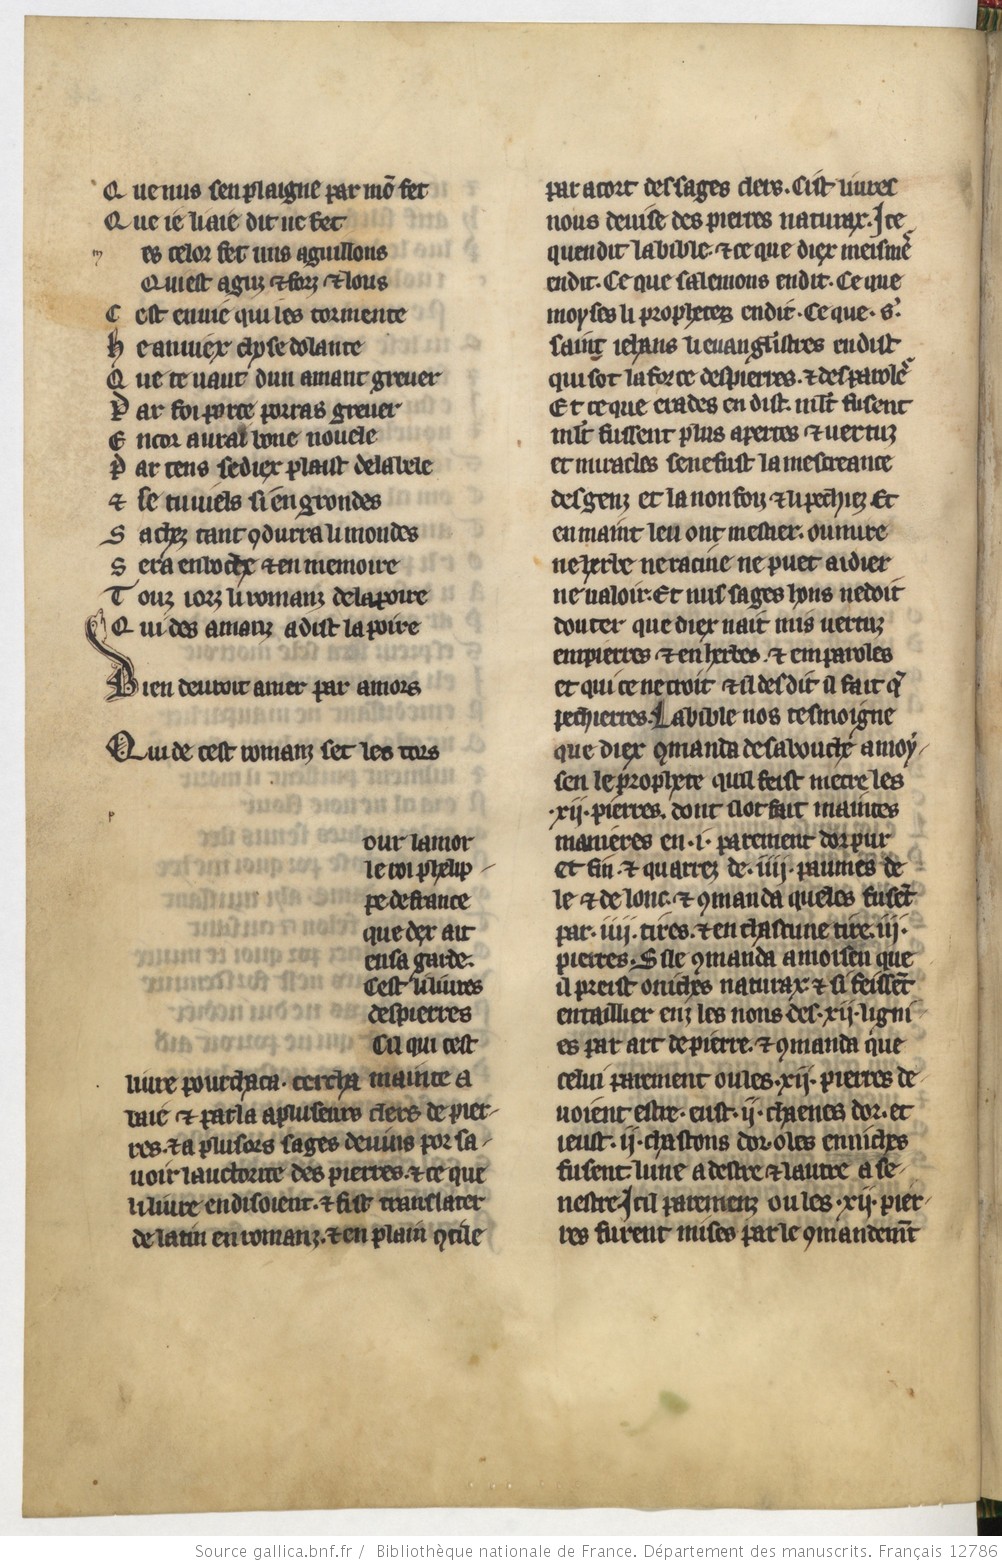 Q ue nus sen plaigne par mō fet
Q ue ie li aie dit ne fet
m es celor fet uns aguillons
Qui est aguz ⁊ forz ⁊ lons
C est enuie qui les tormente
h e anuiex chose dolante
Q ue te uaut dun amant greuer
P ar foi porte porras greuer
E ncor aurai bone nouele
P ar tens se diex plaist de la bele
⁊ se tu uiels si en grondes
S achez tant ꝯ durra li mondes
S era en boche ⁊ en memoire
T ouz iorz li romanz de la poire
Q ui des amanz a dist la poire
Bien deuroit amer par amors
Qui de cest romanz set les tors
p
our lamor
le roi phelip
pe de france
que dex ait
en sa garde.
Cest li liures
des pierres
Cil qui cest
liure pourchaca. cercha mainte a
baie ⁊ parla a pluseurs clers de pier
res. ⁊ a plusors sages deuins por sa
uoir lauctorite des pierres. ⁊ ce que
li liure en disoient. ⁊ fist translater
de latin en romanz. ⁊ en plain ꝯcile
par acort des sages clers. Cist liures
nous deuise des pierres naturax. Ice
quen dit la bible. ⁊ ce que diex meismē
en dit. Ce que salemons en dit. Ce que
moyses li prophetes en dit. Ce que. s.
saint iehans li euangelistres en dist
qui sot la force des pierres. ⁊ des parolē
Et ce que erades en dist. mlt fusent
mlt fussent plus apertes ⁊ uertuz
et miracles se ne fust la mescreance
des genz et la non foiz ⁊ li pechiez Et
en maint leu ont mestier. ou mire
ne herbe ne racine ne puet aidier
ne ualoir. Et nus sages hons ne doit
douter que diex nait mis uertuz
en pierres ⁊ en herbes. ⁊ em paroles
et qui ce ne croit ⁊ il desdit il fait q̄
pechierres. La bible nos tesmoigne
que diex ꝯmanda de sa bouche a moy
sen le prophete quil feist metre les
.xij. pierres. dont il ot fait maintes
manieres en .i. parement dor pur
et fin. ⁊ quarrez de .iiij. paumes de
le ⁊ de lonc. ⁊ ꝯmanda queles fusēt
par .iiij. tires. ⁊ en chascune tire. iij.
pierres. Si le ꝯmanda a moisen que
il preist oniches naturax ⁊ si feissēt
entaillier enz les nons des .xij. ligni
es par art de pierre. ⁊ ꝯmanda que
celui parement ou les .xij. pierres de
uoient estre. eust .ij. chaenes dor. et
i eust .ij. chastons dor. o les enniches
fusent. lune a destre ⁊ lautre a se
nestre. Icil paremenz ou les .xij. pier
res furent mises par le ꝯmandemt̄
Source gallica.bnf.fr / Bibliothèque nationale de France. Département des manuscrits. Français 12786